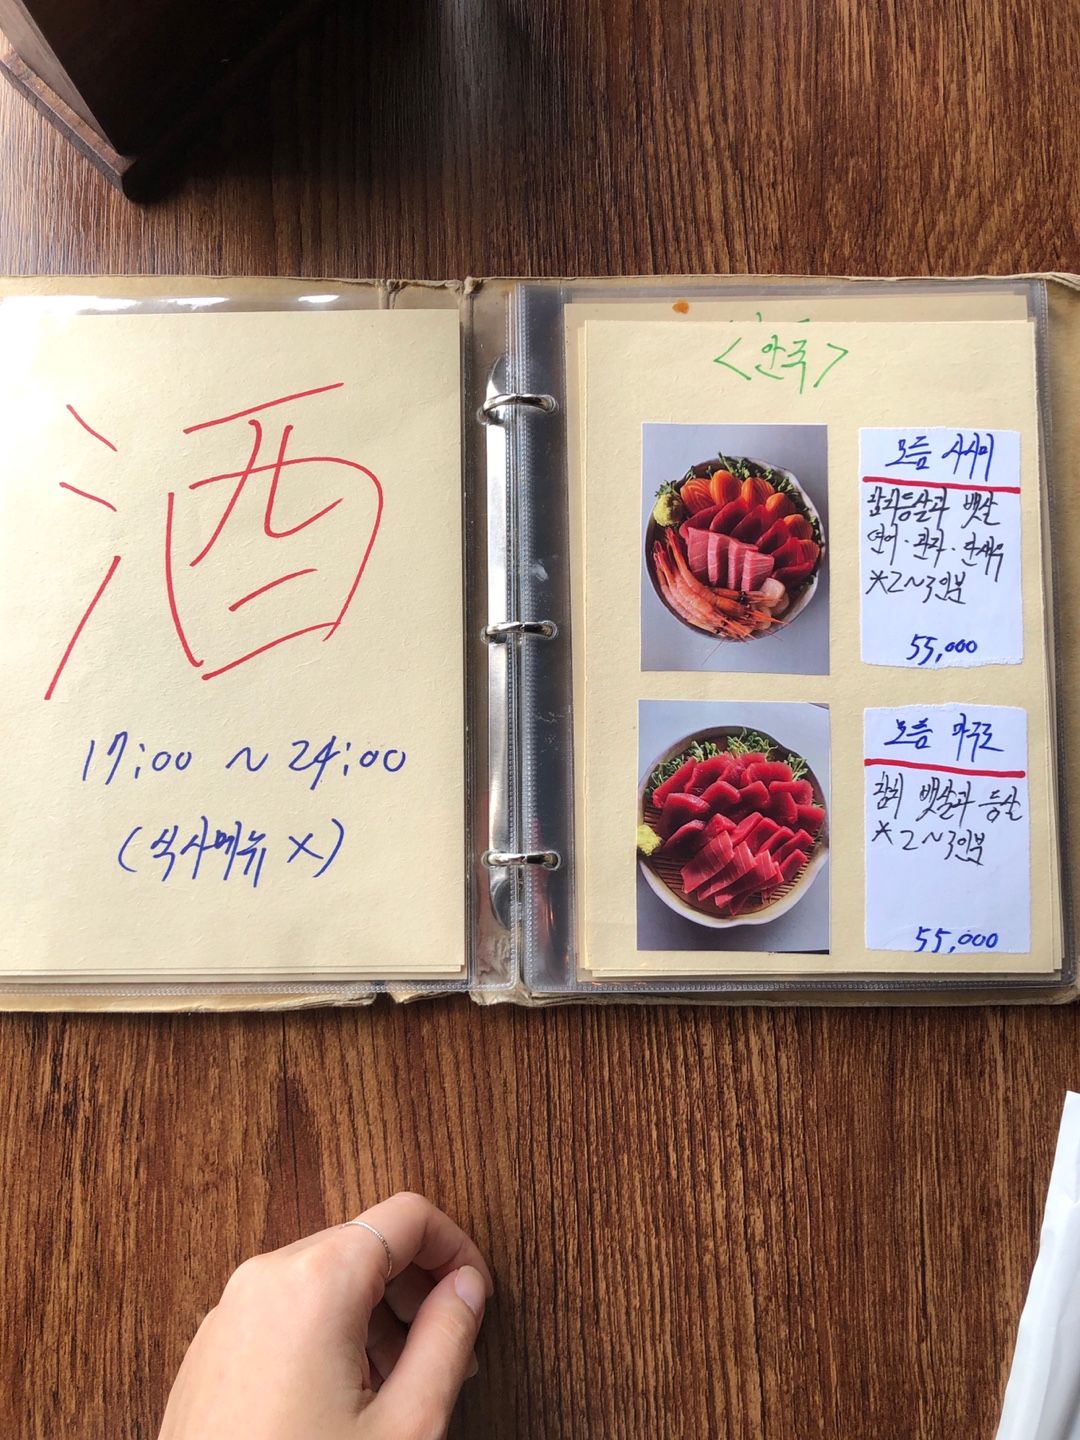 酒
17:00 ~ 24:00
(식사메뉴 X)
<안주>
모듬 사시미
참치등살과 뱃살
연어·관자·단새우
*2~3인분
55,000
모듬 마구로
참치 뱃살과 등살
*2~3인분
55,000